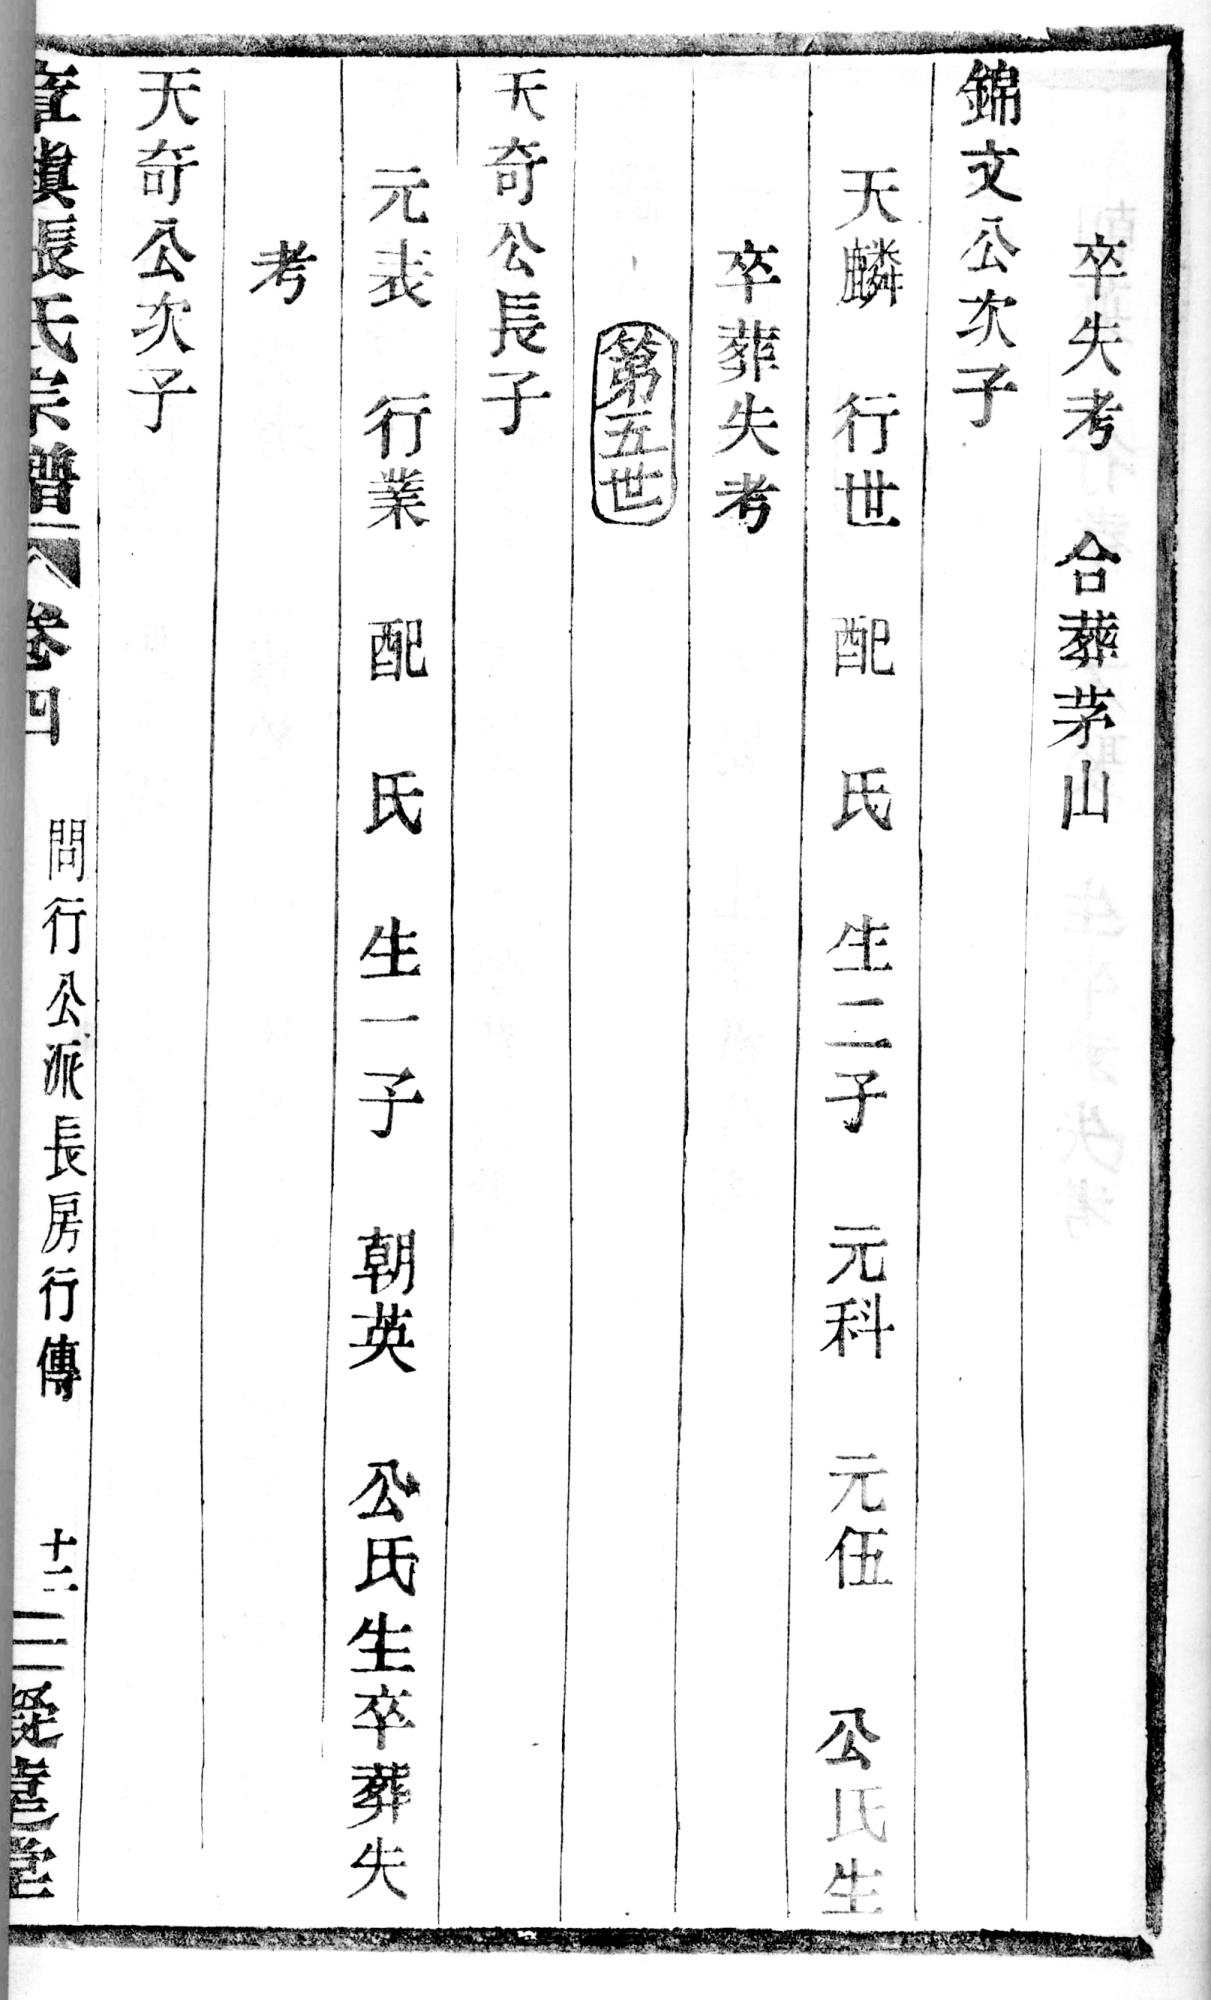 卒失考　合葬茅山
錦文公次子
天麟　行世　配　氏　生二子　元科　元伍　公氏生
卒葬失考
第五世
天奇公長子
元表　行業　配　氏　生一子　朝英　公氏生卒葬失
考
天奇公次子
章鎮張氏宗譜　卷四　問行公派長房行傳　十二　堂